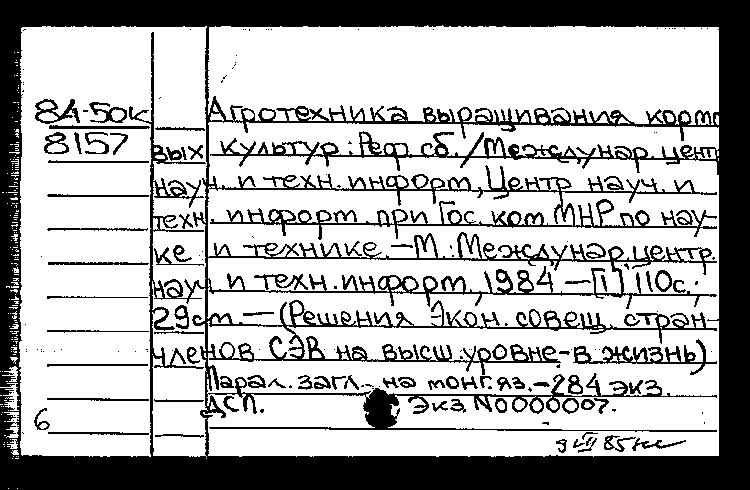 84-50к Агротехника выращивания кормо
8157 вых культур: Реф. сб. / Междунар. центр
науч. и техн. информ., Центр науч. и
техн. информ. при Гос. ком. МНР по нау-
ке и технике. – М.: Междунар. центр
науч. и техн. информ., 1984 – [1], 110с.;
29 см. – (Решения Экон. совещ. стран-
членов СЭВ на высш. уровне - в жизнь)
Парал. загл. на монг. яз. – 284 экз.
ДСП. Экз. N0000007.
6